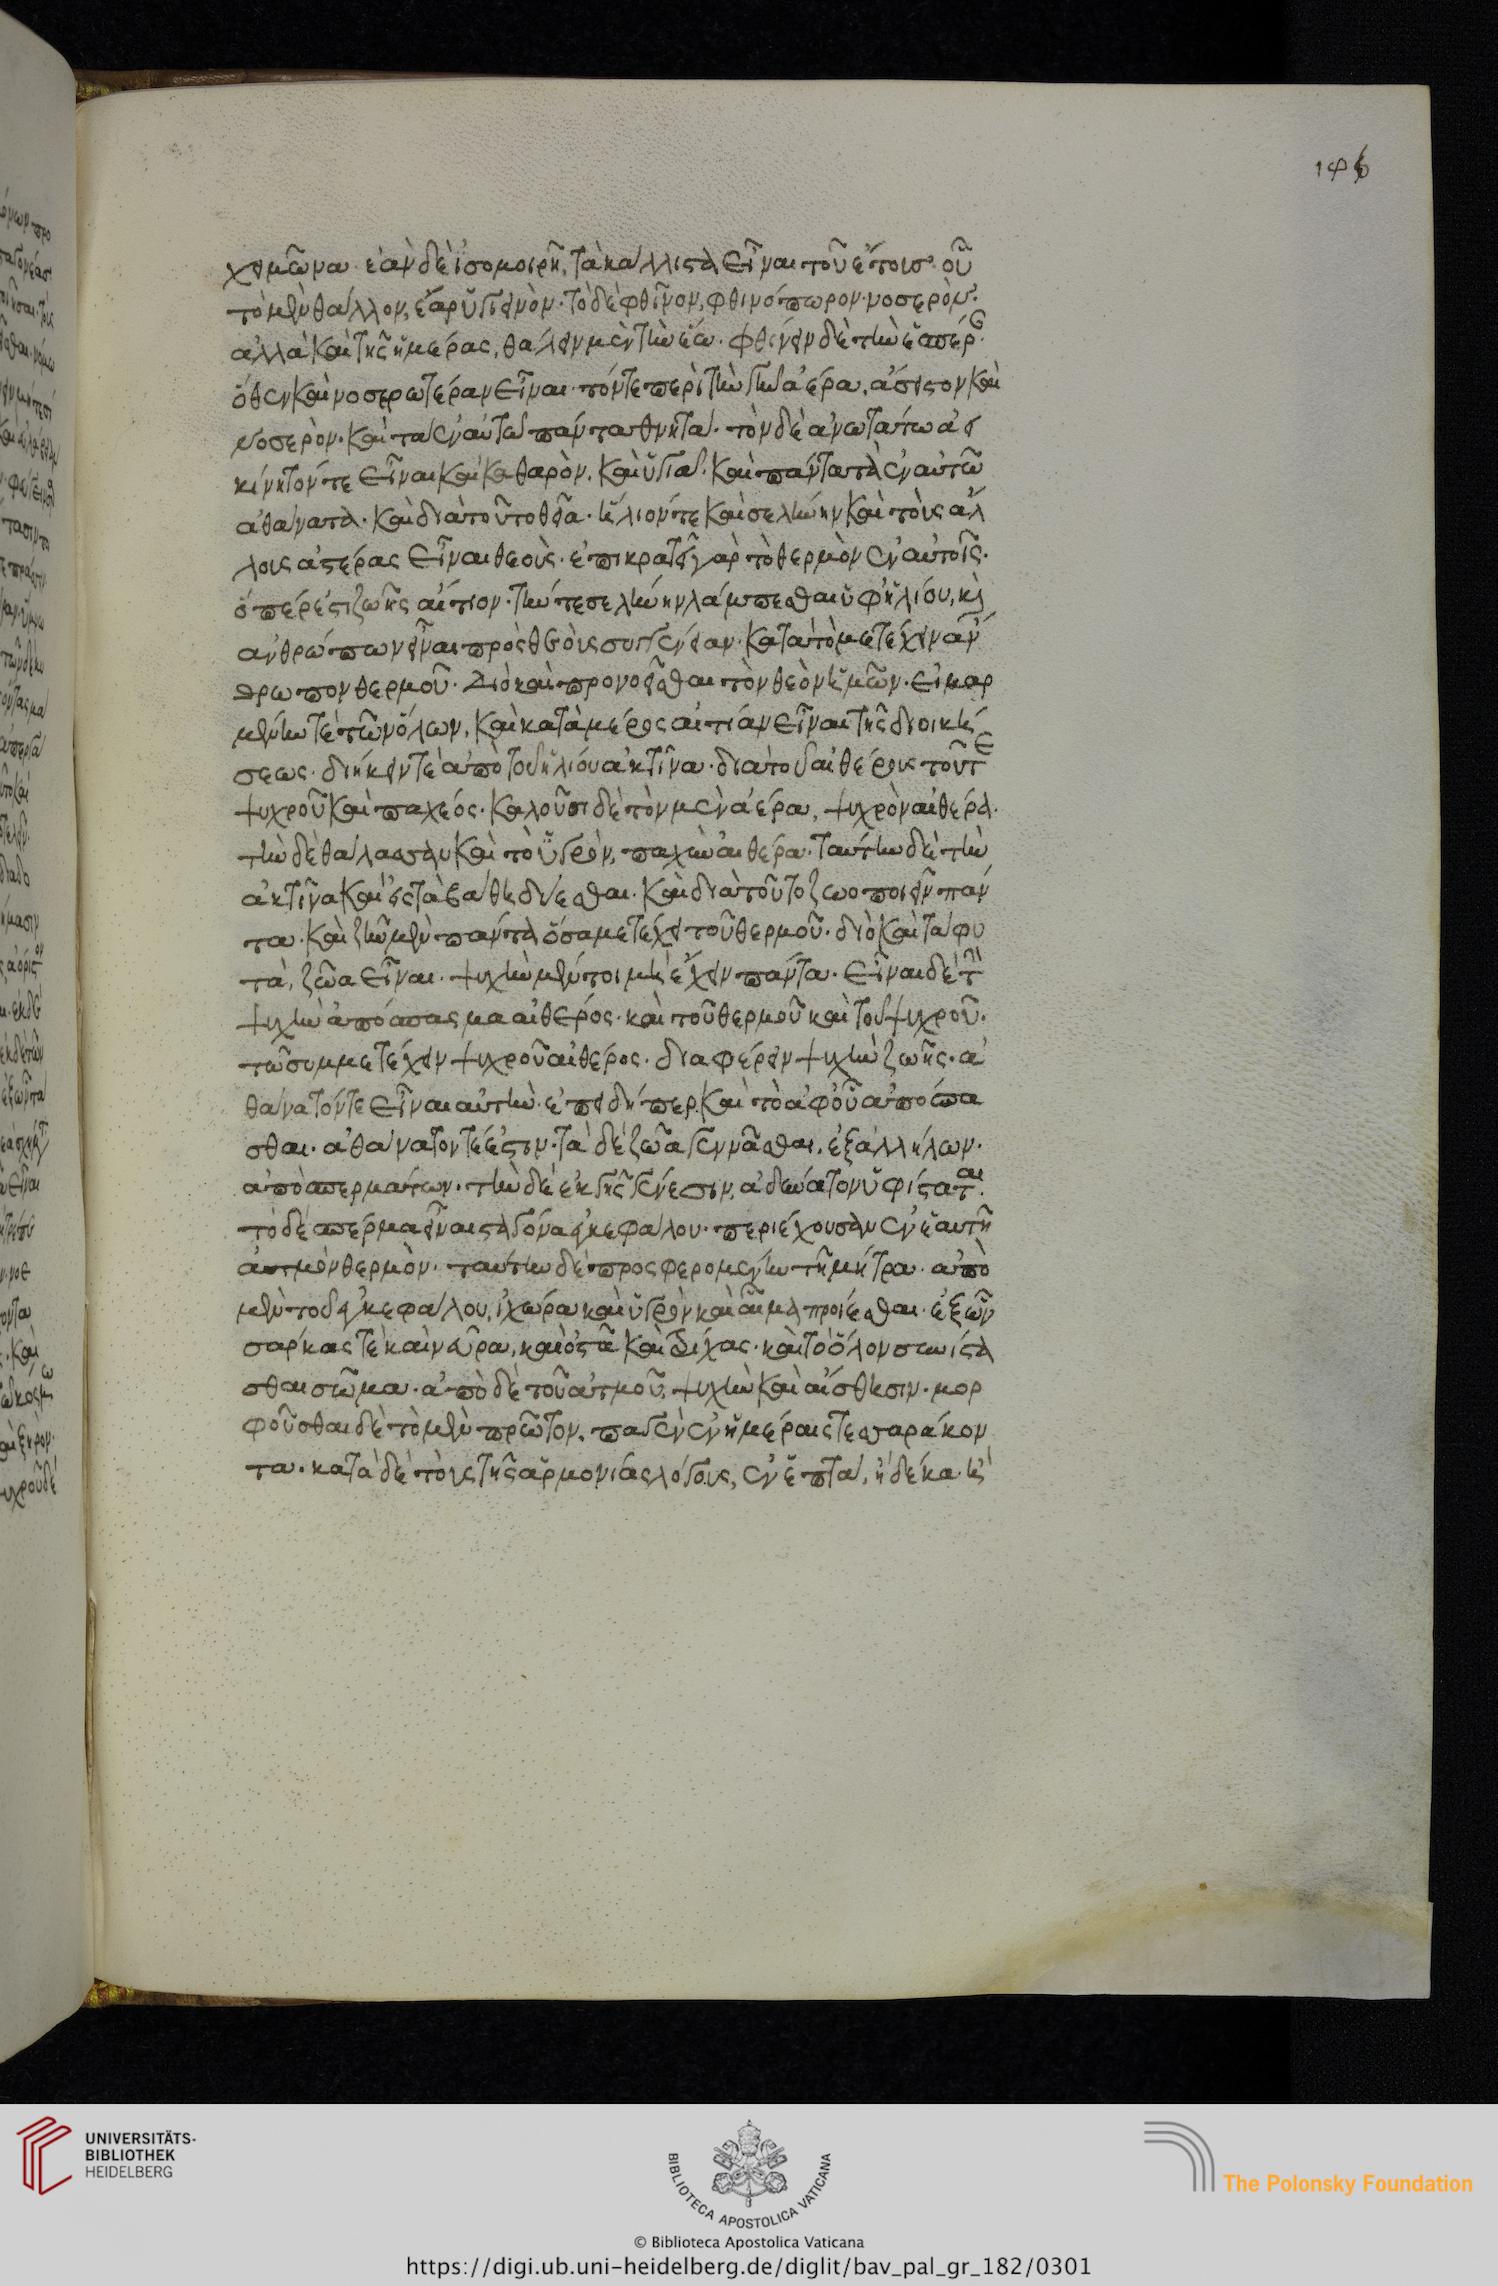 146
χειμῶνα· ἐὰν δὲ ἰσομοιρῆ, τὰ κάλλιστα εἶναι τοῦ ἔτους· οὗ
τὸ μὲν θάλλον, ἔαρ ὑγιεινὸν· τὸ δὲ φθῖνον, φθινόπωρον· νοσερὸν·
ἀλλὰ καὶ τῆς ἡμέρας, θάλλειν μὲν τὴν ἕω· φθίνειν δὲ τὴν ἑσπέρ
ὅθεν καὶ νοσερωτέραν εἶναι· τόν τε περὶ τὴν γῆν ἀέρα, ἄσειστον καὶ
νοσερὸν· καὶ τὰ ἐν αὐτῶ πάντα θνητὰ· τὸν δὲ ἀνωτάτω ἀει
κίνητόν τε εἶναι καὶ καθαρὸν, καὶ ὑγιᾶ· καὶ πάντα τὰ ἐν αὐτῶ
ἀθάνατα· καὶ διὰ τοῦτο θεῖα· ἥλιόν τε καὶ σελήνην καὶ τοὺς ἄλ
λους ἀστέρας εἶναι θεοὺς· ἐπικρατεῖ γὰρ τὸ θερμὸν ἐν αὐτοῖς·
ὅπερ ἐστι ζωῆς αἴτιον· τήν τε σελήνην λάμπεσθαι ὑφ' ἡλίου, κὶ
ἀνθρώπων εἶναι πρὸς θεοὺς συγγένειαν· κατὰ τὸ μετέχειν ἄν
θρωπον θερμοῦ· Διὸ καὶ προνοεῖσθαι τὸν θεὸν ἡμῶν· εἱμαρ
μένην τὲ τῶν ὅλων, καὶ κατὰ μέρος αἰτίαν εἶναι τῆς διοική
σεως· διήκειν τὲ ἀπὸ τοῦ ἡλίου ἀκτῖνα· διὰ τοῦ αἰθέρος τοῦ τε
ψυχροῦ καὶ παχέος· καλοῦσι δὲ τὸν μὲν ἀέρα, ψυχρὸν αἰθέρα·
τὴν δὲ θάλασσαν καὶ τὸ ὑγρὸν, παχὺν αἰθέρα· ταύτην δὲ τὴν
ἀκτῖνα καὶ εἰς τὰ βάθη δύεσθαι· καὶ διὰ τοῦτο ζωοποιεῖν πάν
τα· καὶ ζῆν μὲν πάντα ὅσα μετέχει τοῦ θερμοῦ· διὸ καὶ τὰ φυ
τὰ, ζῶα εἶναι· ψυχὴν μέντοι μὴ ἔχειν πάντα· εἶναι δὲ τὴν
ψυχὴν ἀπόσπασμα αἰθέρος· καὶ τοῦ θερμοῦ καὶ τοῦ ψυχροῦ·
τῶ συμμετέχειν ψυχροῦ αἰθέρος· διαφέρειν ψυχὴν ζωῆς· ἀ
θάνατόν τε εἶναι αὐτὴν· ἐπειδήπερ καὶ τὸ ἀφ' οὗ ἀπόσπα
σθαι· ἀθάνατον τέ ἐστιν· τὰ δὲ ζῶα γεννᾶσθαι, ἐξ ἀλλήλων·
ἀπὸ σπερμάτων· τὴν δὲ ἐκ γῆς γένεσιν, ἀδύνατον ὑφίσταται·
τὸ δὲ σπέρμα εἶναι σταγόνα ἐγκεφάλου· περιέχουσαν ἐν ἑαυτῆ
ἀτμὸν θερμὸν· ταύτην δὲ προσφερομένην τῆ μήτρα· ἀπὸ
μὲν τοῦ ἐγκεφάλου, ἰχῶρα καὶ ὑγρὸν καὶ αἷμα προίεσθαι· ἐξ ὧν
σάρκας τὲ καὶ νεῦρα, καὶ ὀστᾶ καὶ τρίχας· καὶ τὸ ὅλον συνίστα
σθαι σῶμα· ἀπὸ δὲ τοῦ ἀτμοῦ, ψυχὴν καὶ αἴσθησιν· μορ
φοῦσθαι δὲ τὸ μὲν πρῶτον, παγὲν ἐν ἡμέραις τεσσαράκον
τα· κατὰ δὲ τοὺς τῆς ἁρμονίας λόγους, ἐν ἑπτὰ, ἢ δέκα· ἢ
UNIVERSITÄTS-
BIBLIOTHEK
HEIDELBERG
BIBLIOTECA APOSTOLICA VATICANA
The Polonsky Foundation
© Biblioteca Apostolica Vaticana
https://digi.ub.uni-heidelberg.de/diglit/bav_pal_gr_182/0301